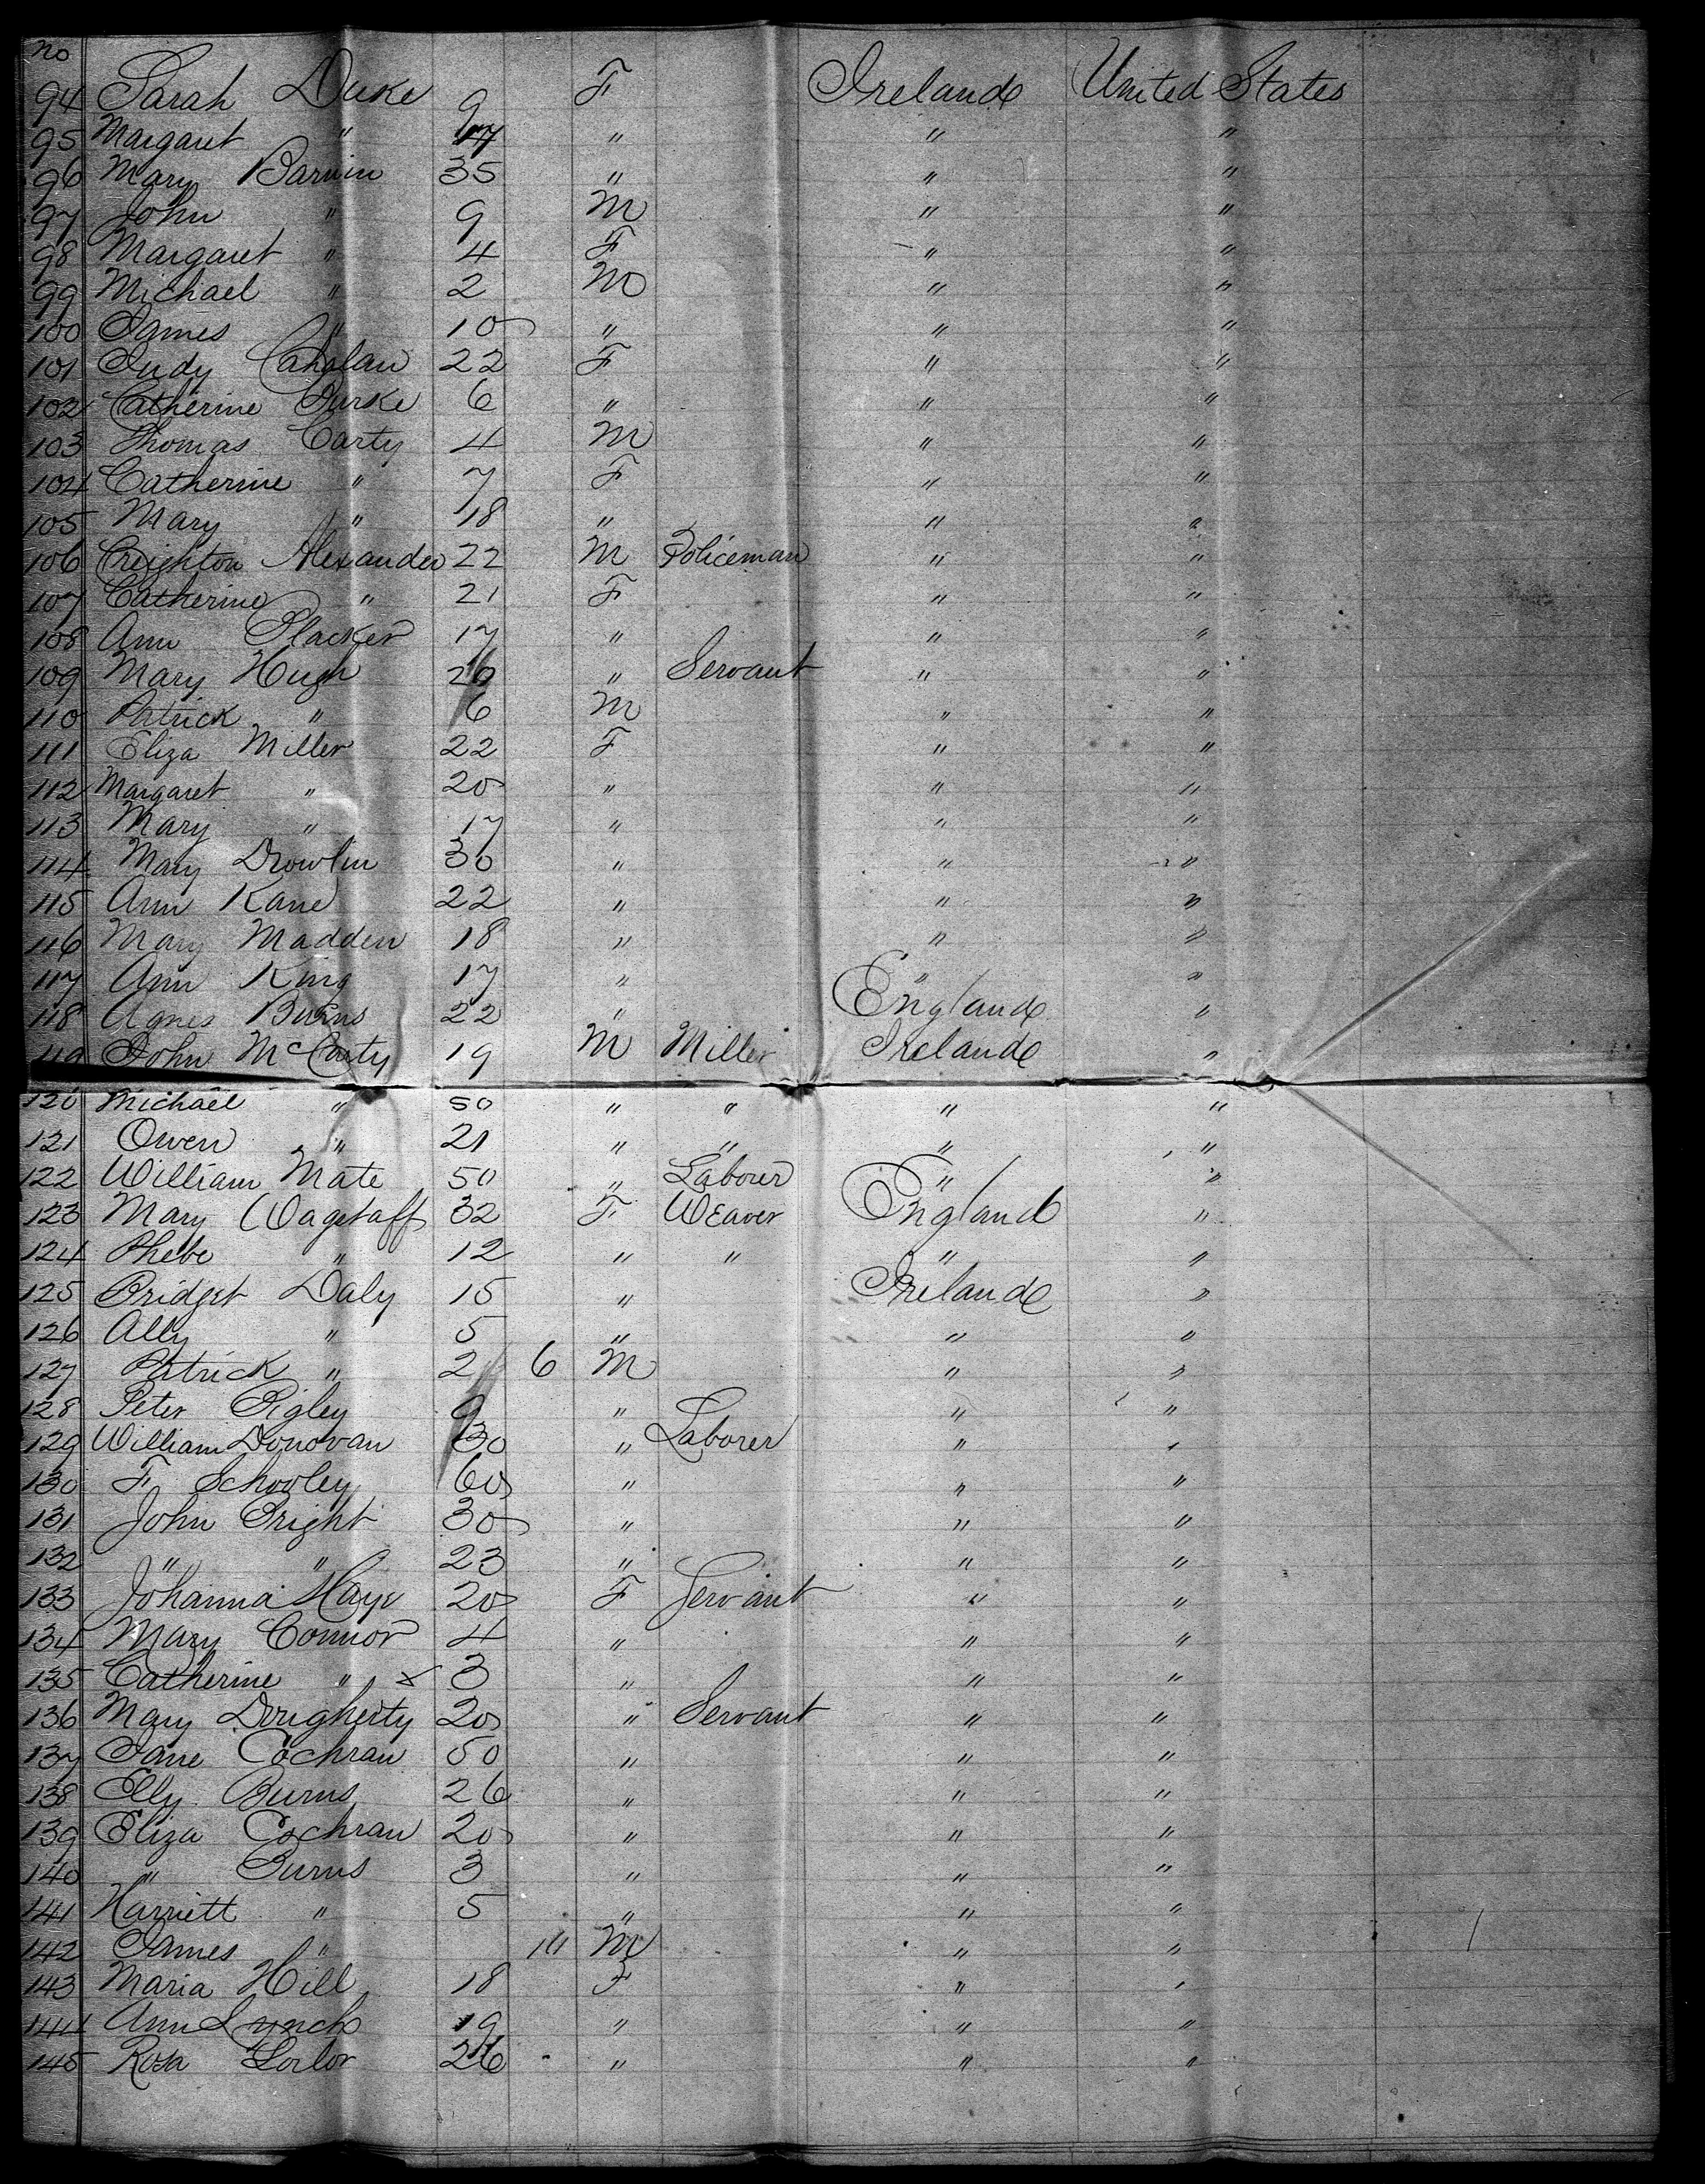 No
94 Sarah Duke 9 F Ireland United States
95 Margaret " " " "
96 Mary Barnin 35 " " "
97 John " 9 M " "
98 Margaret " 4 F " "
99 Michael " 2 M " "
100 James " 10 " " "
101 Judy 22 F " "
102 Catherine Burke 6 " " "
103 Thomas Carty 4 M " "
104 Catherine " 7 F " "
105 Mary " 18 " " "
106 Creighton Alexander 22 M Policeman " "
107 Catherine " 21 F " "
108 Ann Placker 17 " " "
109 Mary Hugh " Servant " "
110 Patrick " 6 M " "
111 Eliza Miller 22 F " "
112 Margaret " 20 " " "
113 Mary " 17 " " "
114 Mary Drowlin 30 " " "
115 Ann Kane 22 " " "
116 Mary Madden 18 " " "
117 Ann King 17 " " "
118 Agnes Burns 22 " England "
119 John McCarty 19 M Miller Ireland "
120 Michael " 50 " " " "
121 Owen " 21 " " " "
122 William Mate 50 " Laborer " "
123 Mary Wagstaff 32 F Weaver England "
124 Phebe " 12 " " " "
125 Bridget Daly 15 " Ireland "
126 Ally " 5 " " "
127 Patrick " 2 6 M " "
128 Peter Rigley 9 " " "
129 William Donovan 30 " Laborer " "
130 F. Schooley 60 " " "
131 John Bright 30 " " "
132 " " 23 " " "
133 Johanna Haye 20 F Servant " "
134 Mary Connor 4 " " "
135 Catherine " x 3 " " "
136 Mary Dougherty 20 " Servant " "
137 Jane Cochran 50 " " "
138 Elly Burns 26 " " "
139 Eliza Cochran 20 " " "
140 " Burns 3 " " "
141 Harriett " 5 " " "
142 James " M " "
143 Maria Hill 18 F " "
144 Ann Lynch 19 " " "
145 Rosa 26 " " "